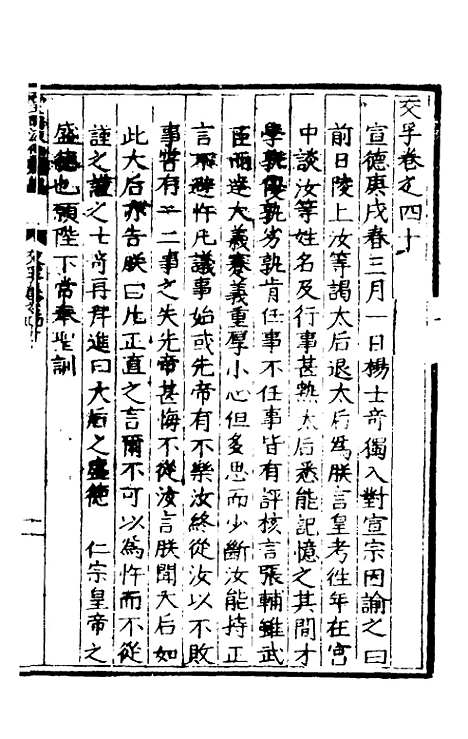 交孚卷之四十
宣德庚戌春三月一日楊士奇獨入對宣宗因諭之曰
前日陵上汝等謁太后退太后為朕言皇考往年在宮
中談汝等姓名及行事甚熟太后悉能記憶之其間才
學孰優孰劣孰肯任事不任事皆有評核言張輔雖武
臣而達大義蹇義重厚小心但多思而少斷汝能持正
言不避忤凡議事始或先帝有不樂汝終從汝以不敗
事嘗有一二事之失先帝甚悔不從汝言朕聞太后如
此太后亦告朕曰凡正直之言爾不可以為忤而不從
謹之謹之士奇再拜進曰太后之盛德 仁宗皇帝之
盛德也願陛下常奉聖訓